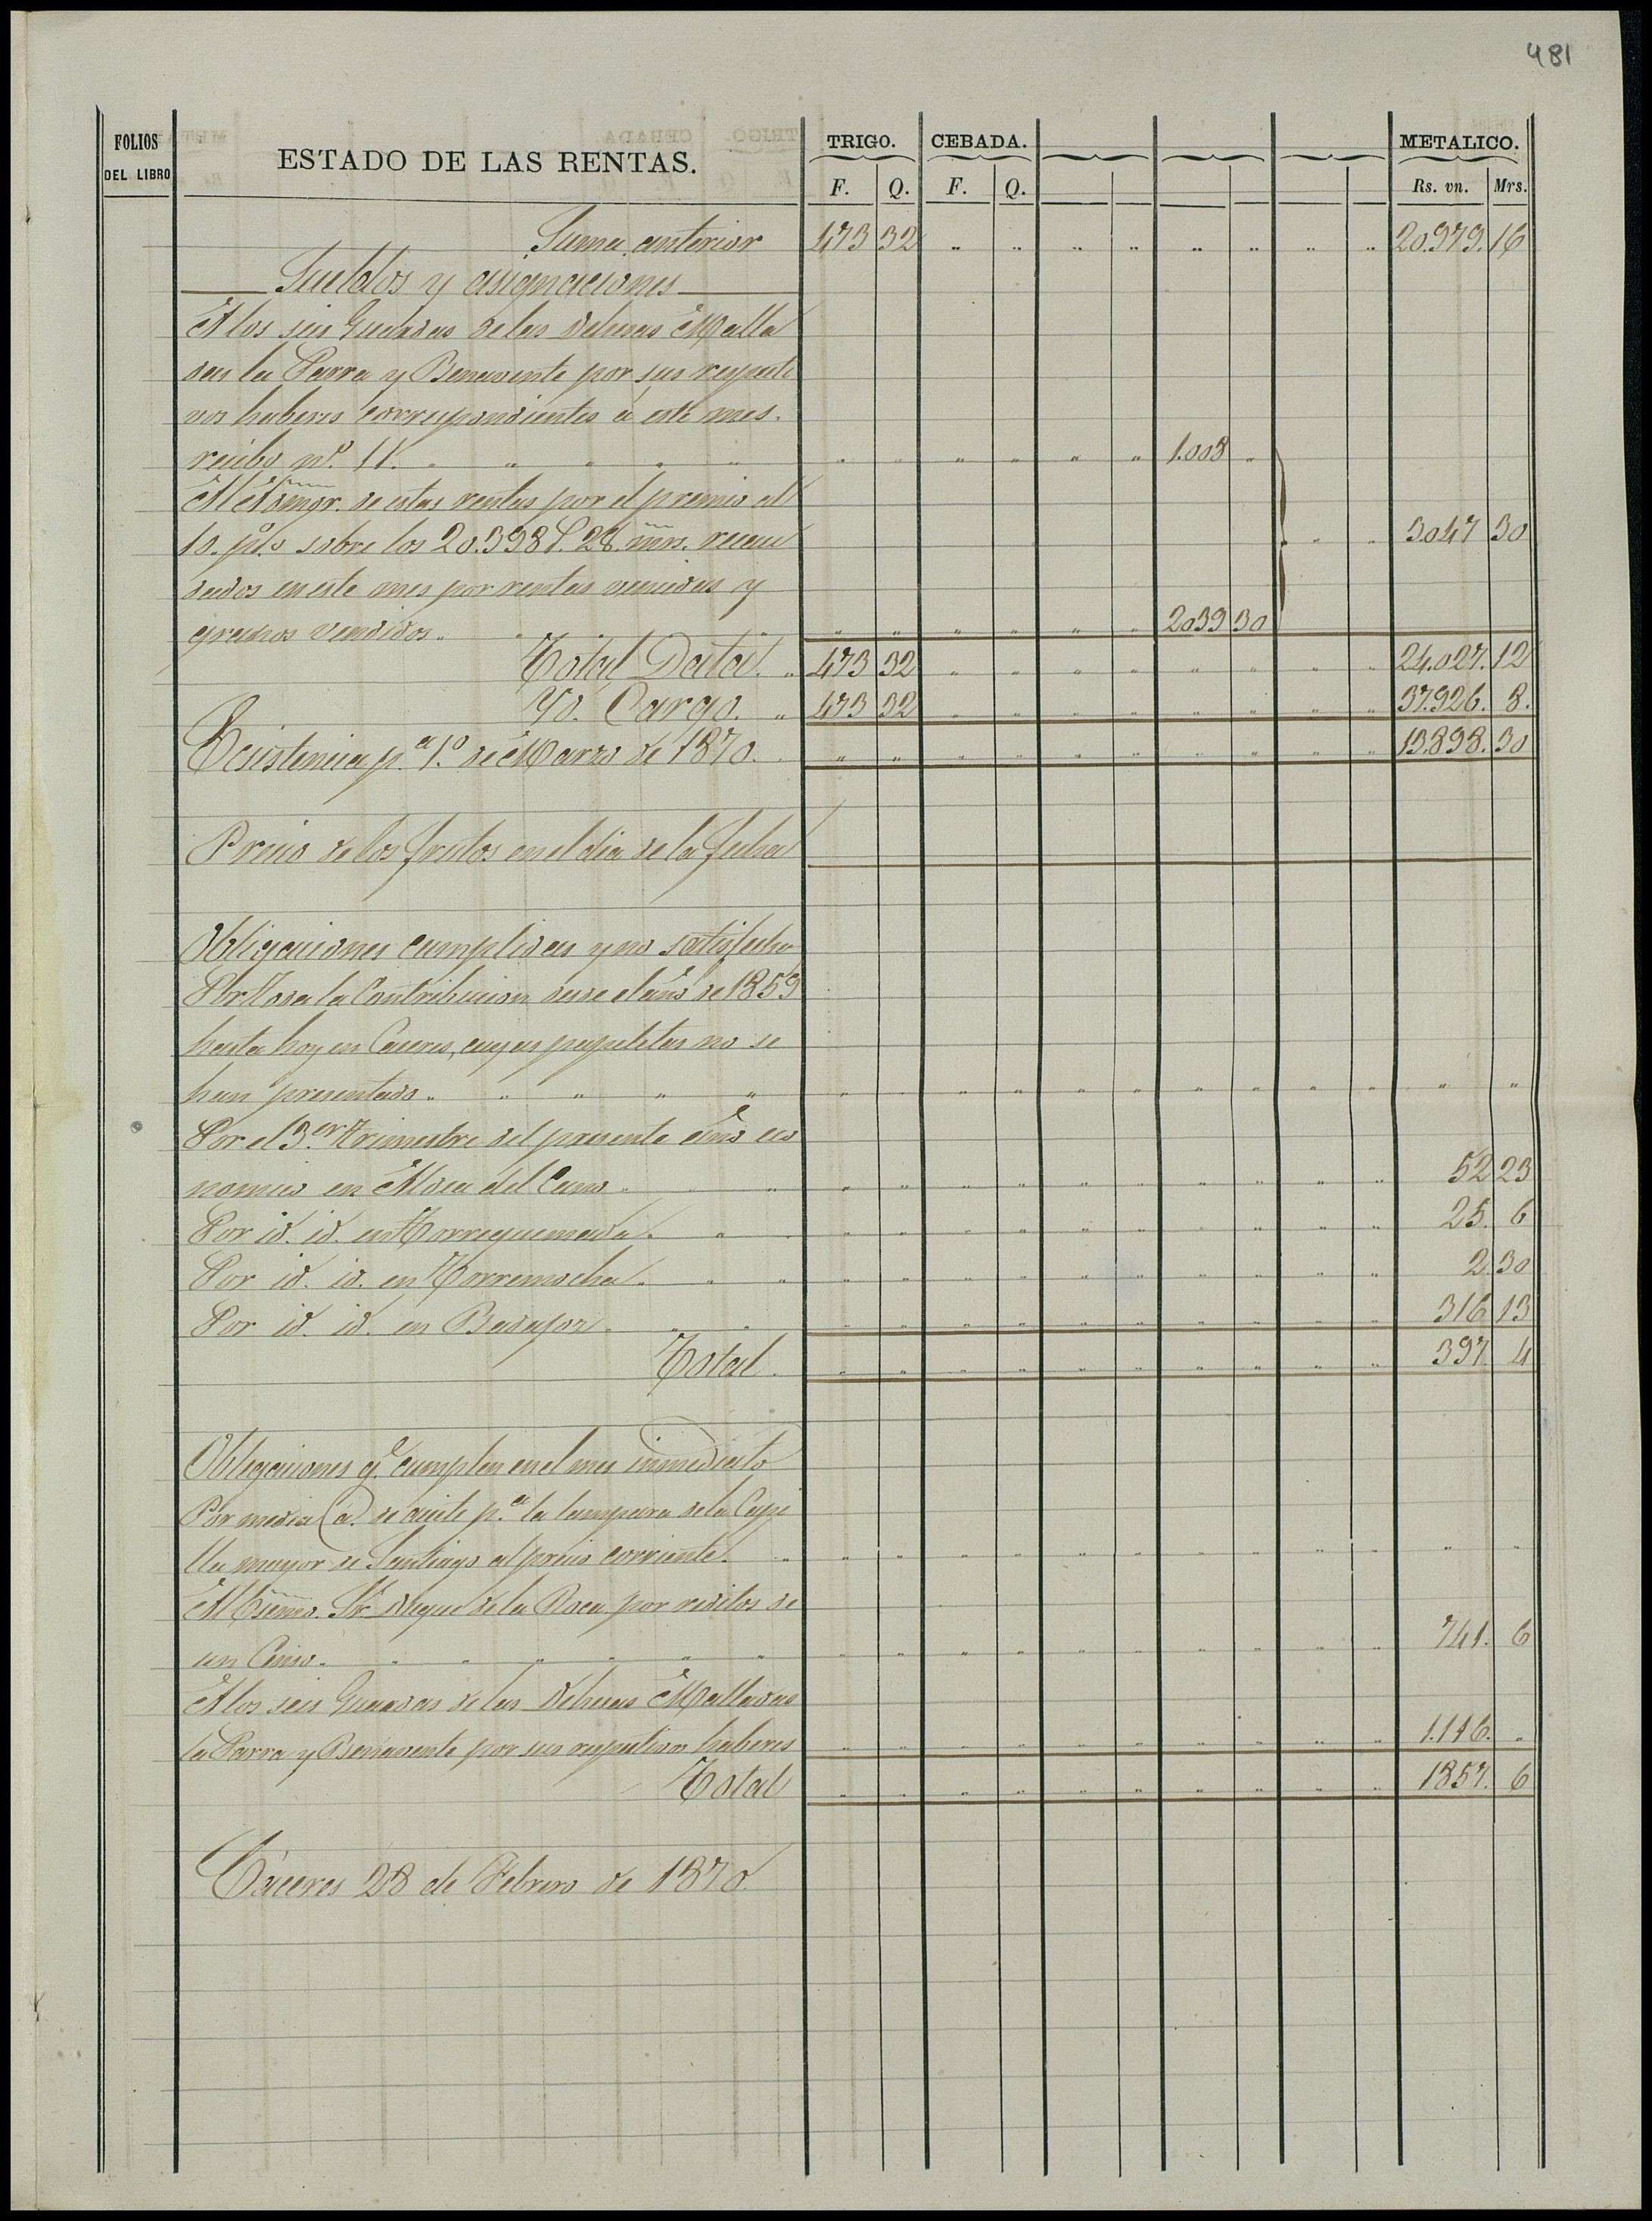 481
FOLIOS DEL LIBRO
ESTADO DE LAS RENTAS.
TRIGO. CEBADA. METALICO.
F. Q. F. Q. Rs. vn. Mrs.
Suma anterior 473 32 „ „ „ „ „ „ „ „ 20.979. 16
Sueldos y asignaciones
A los seis Guardas de las Dehesas Malla
das la Parra y Benavente por sus respecti
vos haberes correspondientes á este mes.
recibo nº. 11. „ „ „ „ „ „ „ „ „ „ „ 1.008 „
Al Admor. de estas rentas por el premio al
10. p%. sobre los 20.398 r. 28 mrs. recau 3.047 30
dados en este mes por rentas vencidas y
granos vendidos. „ „ „ „ „ „ „ 2039 30
Total Data. „ 473 32 „ „ „ „ „ „ „ „ 24.027. 12
Yd. Cargo. „ 473 32 „ „ „ „ „ „ „ „ 37.926. 8.
Existencia p.ª 1.º de Marzo de 1870. „ „ „ „ „ „ „ „ „ „ 13.898. 30
Precio de los frutos en el dia de la fecha
Obligaciones cumplidas y no satisfechas
Por toda la Contribucion desde el año de 1859
hasta hoy en Caceres, cuyas papeletas no se
han presentado. „ „ „ „ „ „ „ „ „ „ „ „ „ „ „ „
Por el 3.er trimestre del presente año eco
nomico en Aldea del Cano „ „ „ „ „ „ „ „ „ „ „ „ 52 23
Por id. id. en Torrequemada. „ „ „ „ „ „ „ „ „ „ „ „ 25. 6
Por id. id. en Torremocha. „ „ „ „ „ „ „ „ „ „ „ „ 2. 30
Por id. id. en Badajoz. „ „ „ „ „ „ „ „ „ „ „ „ 316 13
Total. „ „ „ „ „ „ „ „ „ „ 397. 4
Obligaciones q.e cumplen en el mes inmediato
Por media @. de aceite p.ª la lampara de la Capi
lla mayor de Santiago al precio corriente. „ „ „ „ „ „ „ „ „ „ „ „ „
Al Excmo. Sr. Duque de la Roca por reditos de
un Censo. „ „ „ „ „ „ „ „ „ „ „ „ „ „ „ „ 741. 6
A los seis Guardas de las Dehesas Malladas
la Parra y Benavente por sus respectivos haberes „ „ „ „ „ „ „ „ „ „ 1.116. „
Total „ „ „ „ „ „ „ „ „ „ 1857. 6
Cáceres 28 de Febrero de 1870.